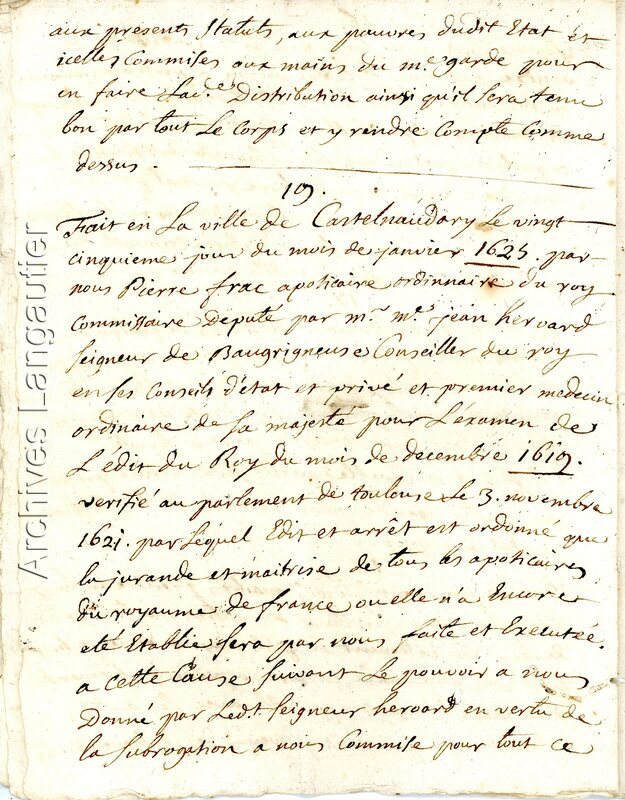 aux presents Statuts, aux pauvres dudit Etat et
icelles Commises aux mains du m.e garde pour
en faire Lad.e Distribution ainsi qu'il sera tenu
bon par tout Le Corps et y rendre Compte Comme
dessus.
19.
Fait en La ville de Castelnaudary Le vingt
cinquieme jour du mois de janvier 1625. par
nous Pierre frac apoticaire ordinaire du roy
Commissaire Deputé par m.r m.e jean hervard
seigneur de Baugrigneuse Conseiller du roy
en ses Conseils d'état et privé et premier medecin
ordinaire de sa majesté pour L'éxamen de
L'édit du Roy du mois de decembre 1619.
verifié au parlement de toulouse Le 3. novembre
1621. par Lequel Edit et arrêt est ordonné que
la jurande et maitrise de tous les apoticaires
du royaume de france ou elle n'a Encore
eté Etablie sera par nous faite et Executée.
a cette Cause suivant Le pouvoir a nous
Donné par Led.t seigneur heroard en vertu de
la subrogation a nous Commise pour tout ce
Archives Langautier